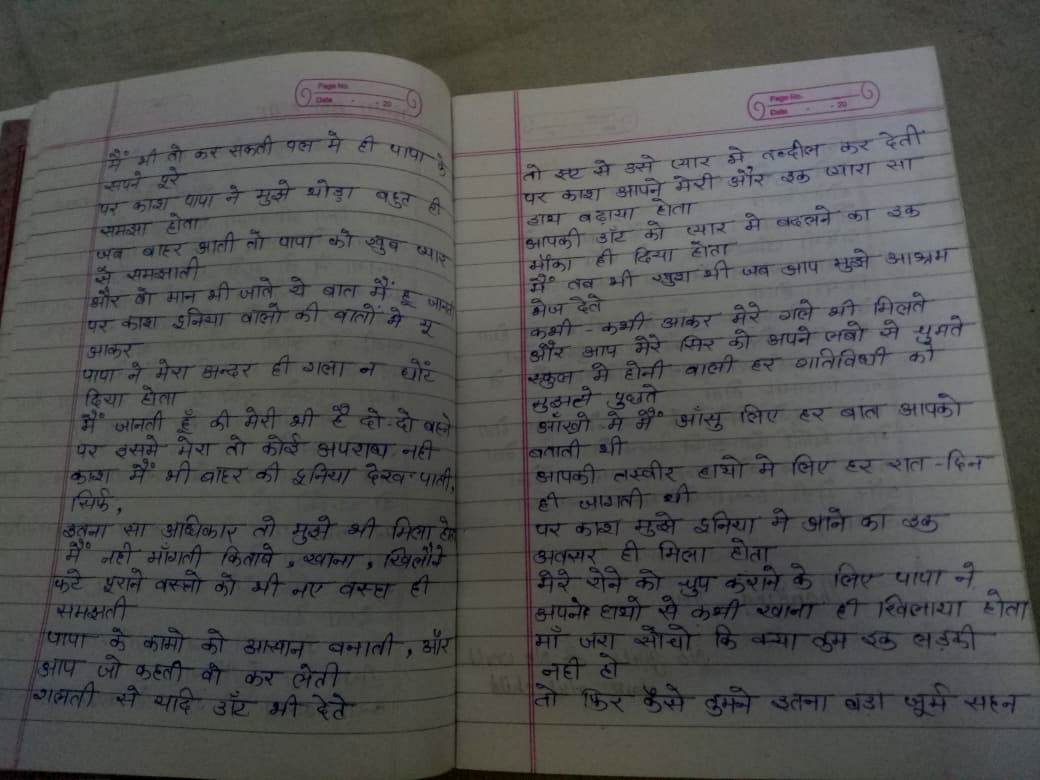 Page No.
Date - - 20
मैं भी तो कर सकती पल मे ही पापा के
सपने पूरे
पर काश पापा ने मुझे थोड़ा बहुत ही
समझा होता
जब बाहर आती तो पापा को खुब प्यार
से समझाती
और वो मान भी जाते ये बात मैं हू जानती
पर काश दुनिया वालो की बातों मे यू
आकर
पापा ने मेरा अन्दर ही गला न घोंट
दिया होता
मैं जानती हूँ की मेरी भी है दो-दो बहने
पर इसमे मेरा तो कोई अपराध नही
काश मैं भी बाहर की दुनिया देख पाती,
सिर्फ,
इतना सा अधिकार तो मुझे भी मिला होता
मैं नही माँगती किताबे, खाना, खिलौने
फटे पुराने वस्त्रो को भी नए वस्त्र ही
समझती
पापा के कामो को आसान बनाती, और
आप जो कहती वो कर लेती
गलती से यदि डाँट भी देते
Page No.
Date - - 20
तो झट से उसे प्यार मे तब्दील कर देती
पर काश आपने मेरी और इक प्यारा सा
हाथ बढ़ाया होता
आपकी डाँट को प्यार मे बदलने का इक
मौका ही दिया होता
मैं तब भी खुश थी जब आप मुझे आश्रम
भेज देते
कभी-कभी आकर मेरे गले भी मिलते
और आप मेरे सिर को अपने लबो से चुमते
स्कुल मे होनी वाली हर गतिविधी को
मुझसे पुछते
आँखो मे मैं आँसु लिए हर बात आपको
बताती थी
आपकी तस्वीर हाथो मे लिए हर रात-दिन
ही जागती थी
पर काश मुझे दुनिया मे आने का इक
अवसर ही मिला होता
मेरे रोने को चुप कराने के लिए पापा ने
अपने हाथो से कभी खाना ही खिलाया होता
माँ जरा सोचो कि क्या तुम इक लड़की
नही हो
तो फिर कैसे तुमने इतना बडा जुर्म सहन